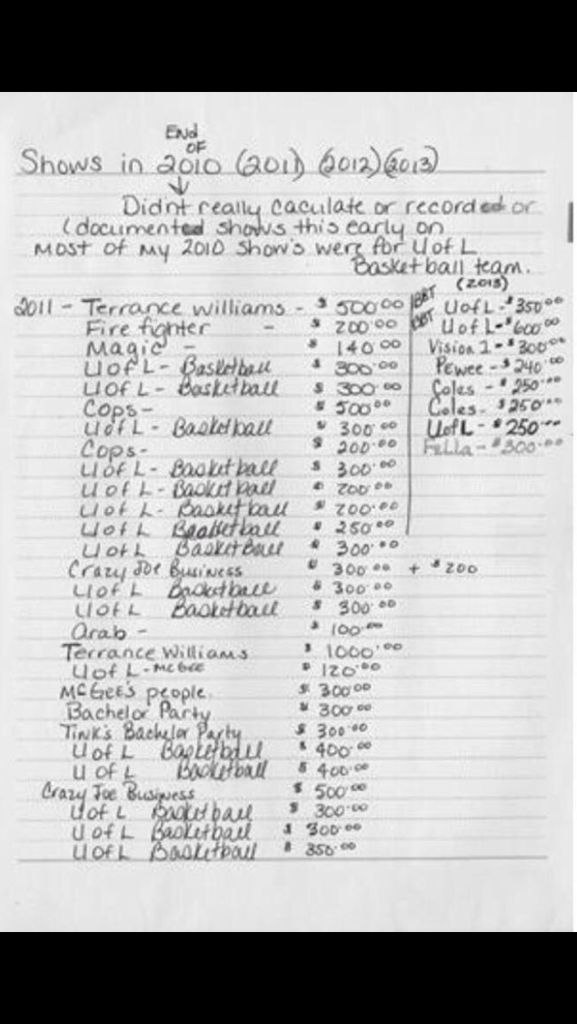 End
OF
Shows in 2010 (2011) (2012) (2013)
Didnt really caculate or recorded or
(documented shows this early on
Most of my 2010 show's were for U of L
Basketball team.
2011 - Terrance Williams - $ 500.00
Fire fighter - $ 200.00
Magic - $ 140.00
U of L - Basketball $ 300.00
U of L - Basketball $ 300.00
Cops - $ 500.00
U of L - Basketball $ 300.00
Cops - $ 200.00
U of L - Basketball $ 300.00
U of L - Basketball $ 200.00
U of L - Basketball $ 200.00
U of L Basketball $ 250.00
U of L Basketball $ 300.00
Crazy Joe Business $ 300.00 + $200
U of L Basketball $ 300.00
U of L Basketball $ 300.00
Arab - $ 100.00
Terrance Williams $ 1000.00
U of L - McGee $ 120.00
McGee's people. $ 300.00
Bachelor Party $ 300.00
Tink's Bachelor Party $ 300.00
U of L Basketball $ 400.00
U of L Basketball $ 400.00
Crazy Joe Business $ 500.00
U of L Basketball $ 300.00
U of L Basketball $ 300.00
U of L Basketball $ 350.00
(2013)
BBT U of L - $350.00
BBT U of L - $600.00
Vision 1 - $300.00
Pewee - $240.00
Coles - $250.00
Coles - $250.00
U of L - $250.00
Fella - $300.00